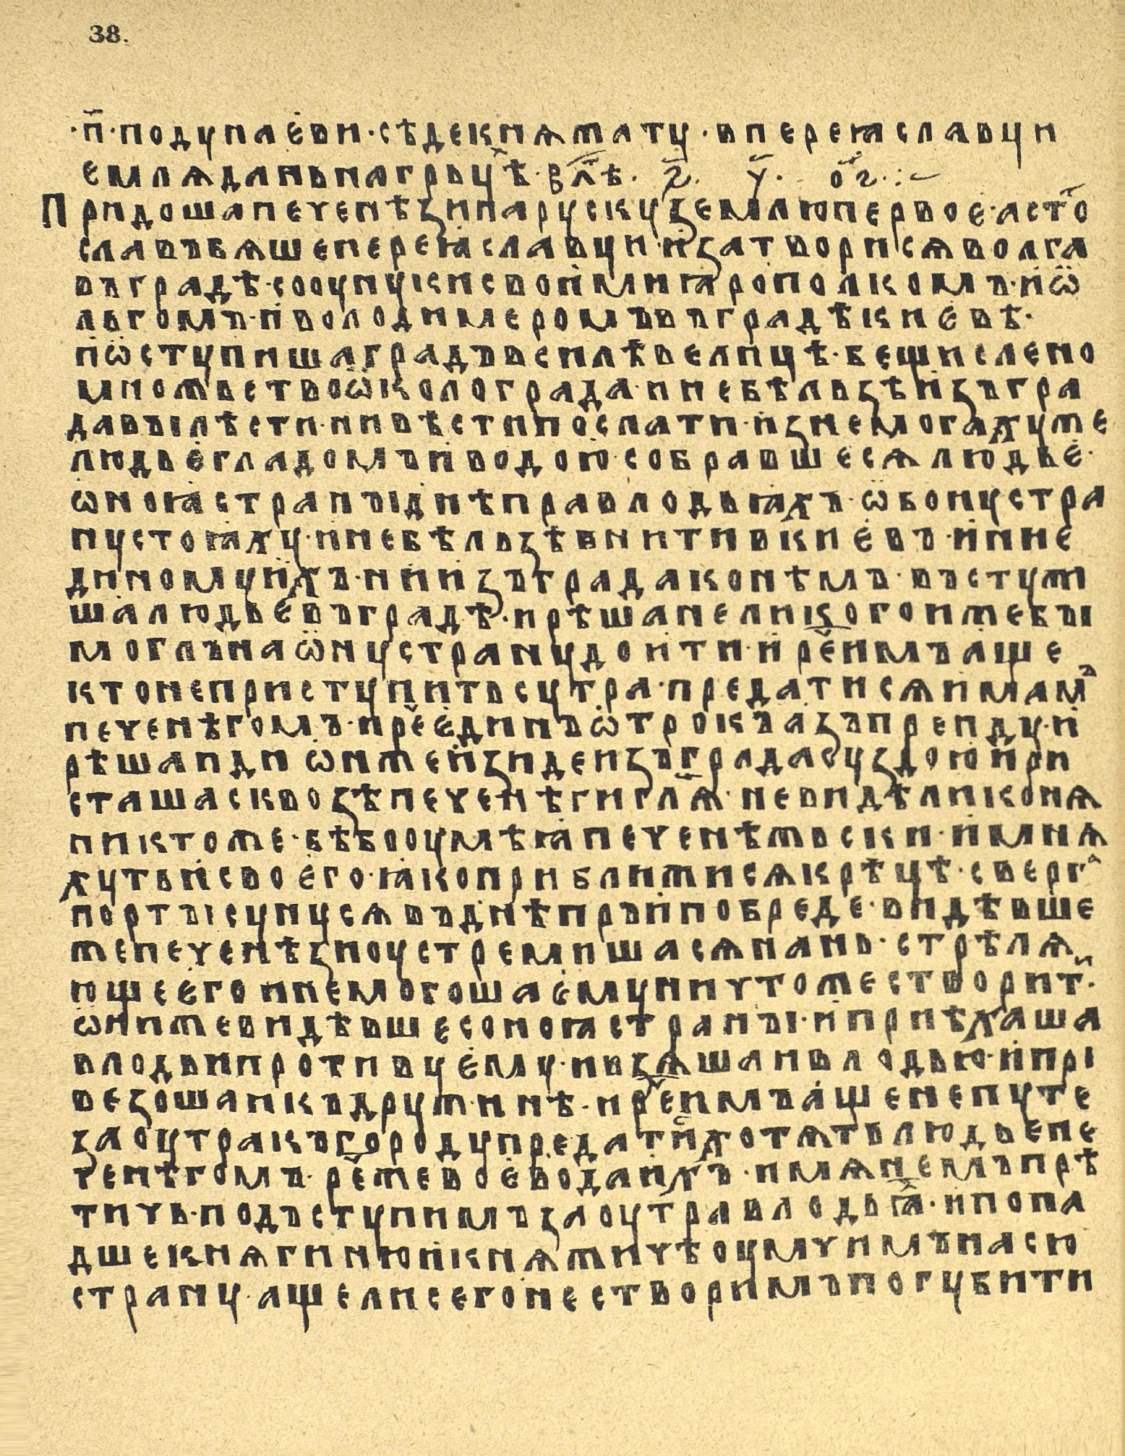 38.
·п҃·подунаеви·сѣдекнѧжату·впереꙗславци
емлѧданьнагрьцѣх·влѣ҃·҂ѕ҃·у҃·ос҃·:~
Придошапеченѣзинарускуземлюпервое·астⷭ҇о
славъбѧшепереꙗславци·изатворисѧволга
въградѣ·соунукисвоимиꙗрополкомъ·иѡ
льгомъ·иволодимеромъвъградѣкиевѣ·
иѡступишаградъвсилѣвелицѣ·бещислено
множьствоѡколограда·инебѣльзѣизъгра
давъıлѣсти·нивѣстипослати·изнемогахуже
людьегладомъиводою·собравшесѧлюдье·
ѡноꙗстранъıднѣправлодьꙗхъ·ѡбонустра
нустоꙗху·инебѣльзѣвнитивкиевъ·ини
диномуихъ·ниизъградаконѣмъ·въстуж
шалюдьевъградѣ·ирѣшанеликогоижебъı
моглънаѡнустранудоити·ирⷱ҇еимъаще
ктонеприступитьсутра·предатисѧимамъ
печенѣгомъ·ирⷱ҇еединъѡтрокъазъпреиду·и
рѣшаидиѡнжеизидеизъградасуздоюири
сташасквозѣпеченѣгигл҃ѧ·невидѣликонѧ
никтоже·бѣбооумѣꙗпеченѣжьски·имнѧ
хутьисвоего·ꙗкоприближисѧкрѣцѣ·сверг
портъıсунусѧвъднѣпръипобреде·видѣвше
жепеченѣзиоустремишасѧнань·стрѣлѧ
ющеегоинемогошаемуничтожестворити·
ѡнижевидѣвшесоноꙗстранъı·иприѣхаша
влодьипротивуему·ивзѧшаивлодью·ипрі
везошаикъдружинѣ·ирⷱ҇еимъащенепуте
заоутракъгородупредатисѧхотѧтьлюдьепе
ченѣгомъ·рⷱ҇ежевоеводаихъ·имѧнемъпрѣ
тичь·подъступимъзаоутравлодьꙗх·ипопа
дшекнѧгинюикнѧжичѣоумчимънасю
страну·ащелисегонестворимъпогубити